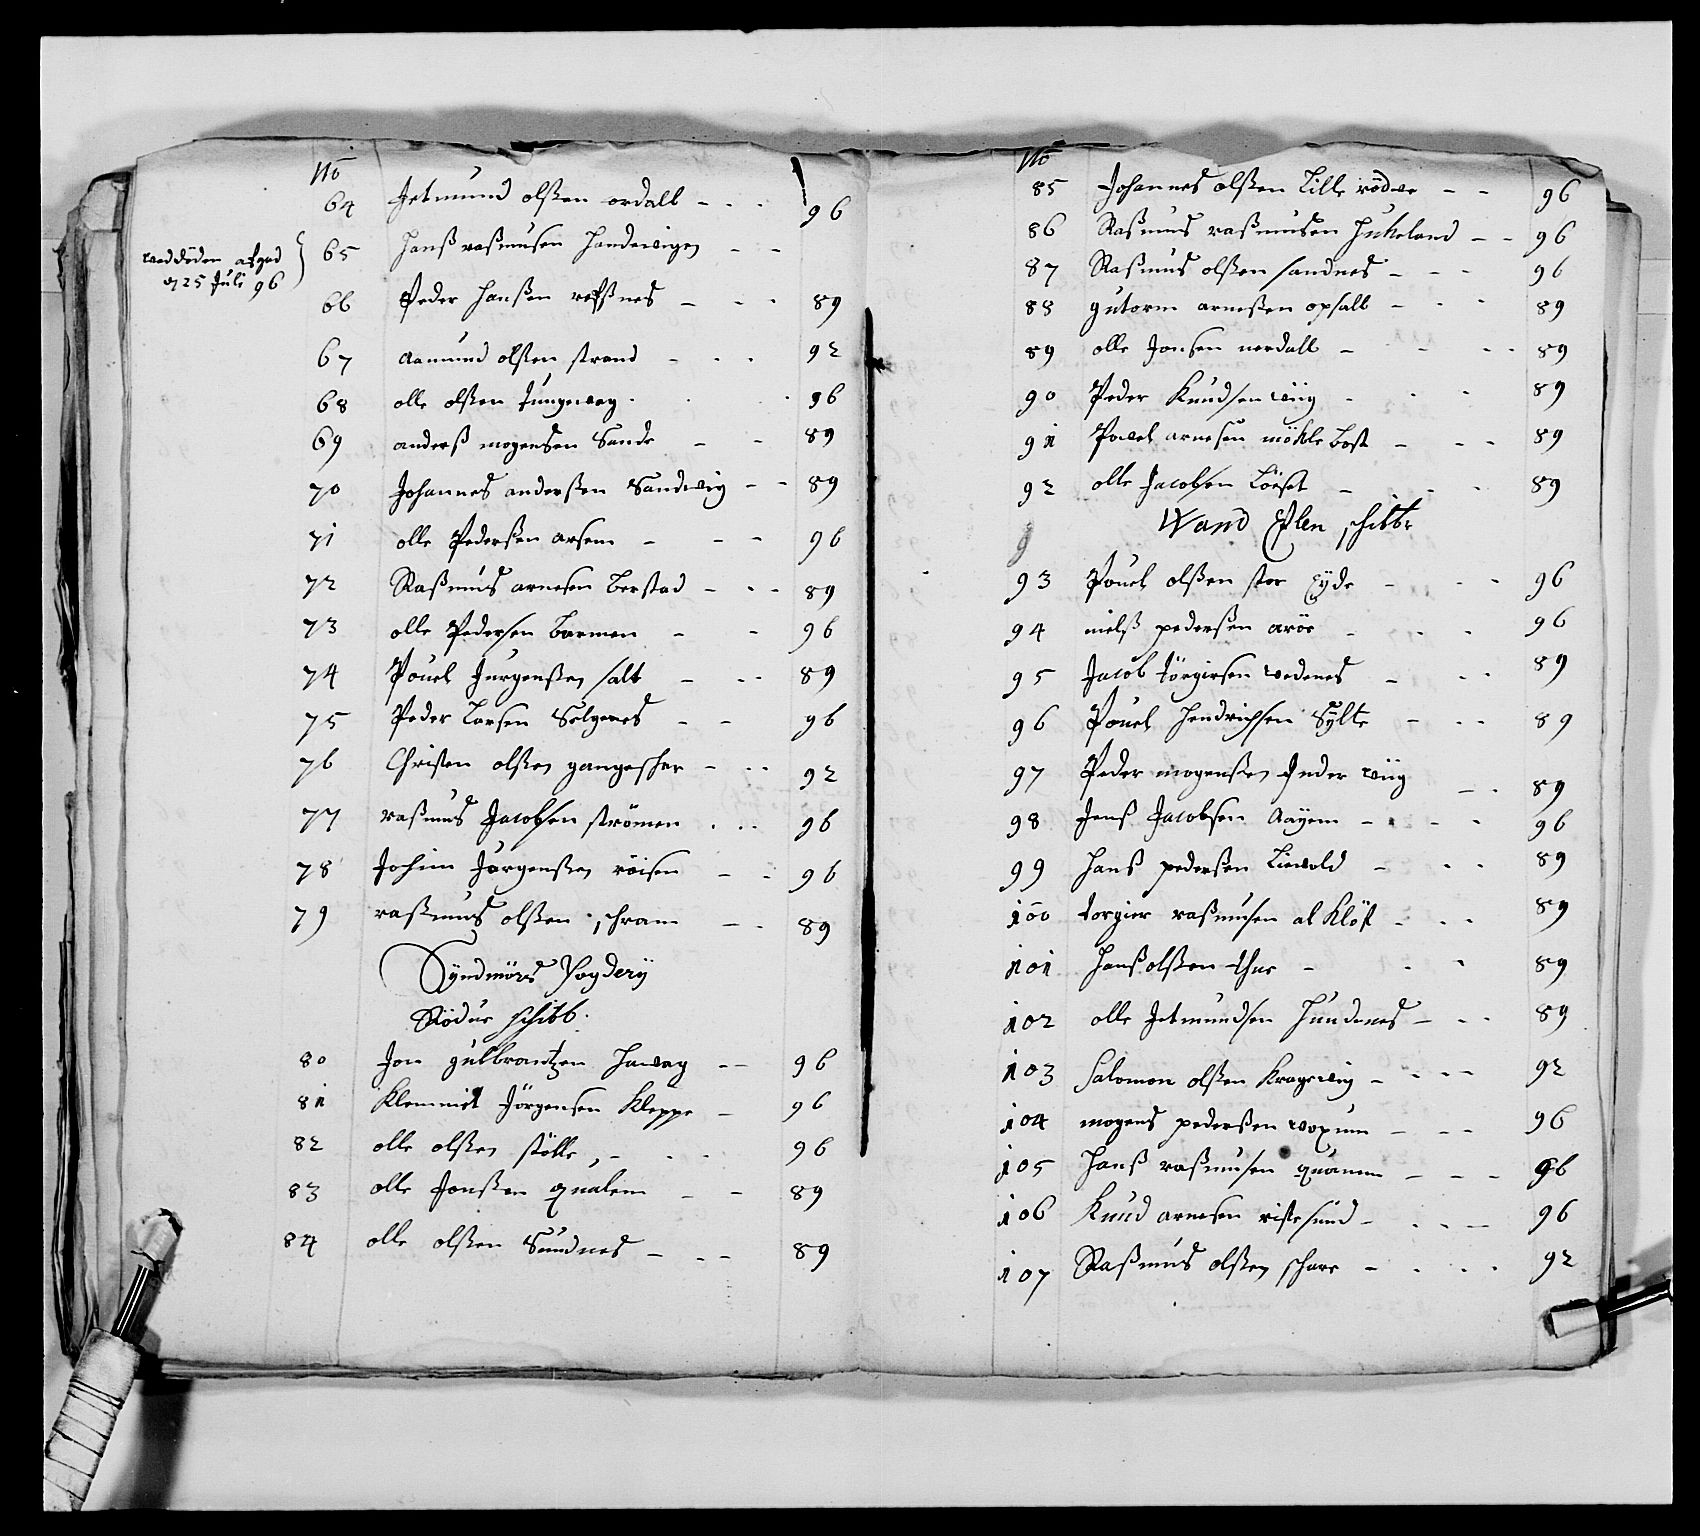 No
64 Jetmund olßen ordall - - - 96
65 Hanß raßmusen Handewigen - -
wed döden afgad
d 25 Juli 96
66 Peder Hanßen refßnes - - - 89
67 Aamund olßen strand - - - 92
68 olle olßen Tungevag - - - 96
69 anderß mogensen Sande - - 89
70 Johannes anderßen Sandwig - - 89
71 olle Pederßen arsem - - - 96
72 Raßmus arnesen berstad - - - 89
73 olle Pedersen barmen - - 96
74 Pouel Jurgenßen salt - - - 89
75 Peder Larsen Selgenes - - 96
76 Christen olßen gangeschar - - - 92
77 raßmus Jacobsen strömen - - - 96
78 Jochim Jörgenßen röisen - - 96
79 raßmus olßen schram - - 89
Syndmörs Fogderij
Rödue schibb.
80 Jon gulbrantzen Hawag - - 96
81 Klemmit Jörgensen Kleppe - 96
82 olle olßen stölle, - - - 96
83 olle Jonßen qualem - - 89
84 olle olßen Sundnes - - - 89
No
85 Johannes olßen Lille rödwe - - 96
86 Raßmus raßmusen Jukeland - - 96
87 Raßmus olßen sandnes - - - 96
88 gutorm arneßen opsall - - - 89
89 olle Jonsen nordall - - - - 89
90 Peder Knudsen wiig - - - 89
91 Powel arnesen mökle bost - - - 89
92 olle Jacobsen Löeset - - - 89
Wand Elven schibbr
93 Pouel olßen stor Eyde - - - 96
94 nielß pederßen aröe - - - 96
95 Jacob törgirsen wedenes - - - 89
96 Pouel Hendrichsen Sylte - - - 89
97 Peder mogenßen Inder wiig - - 89
98 Jenß Jacobsen Aayem - - - - 96
99 Hanß pederßen Liewold - - - 89
100 torgier raßmusen al Klöst - - - 89
101 Hanß olßen thue - - - 89
102 olle Jetmundsen Hundenes - - - 89
103 Salomon olßen Kragewig - - - - 92
104 mogens pederßen woxum - - - 96
105 Hanß raßmusen quamm - - - 96
106 Knud arnesen riste sund - - - - 96
107 Raßmus olßen schare - - - - 92